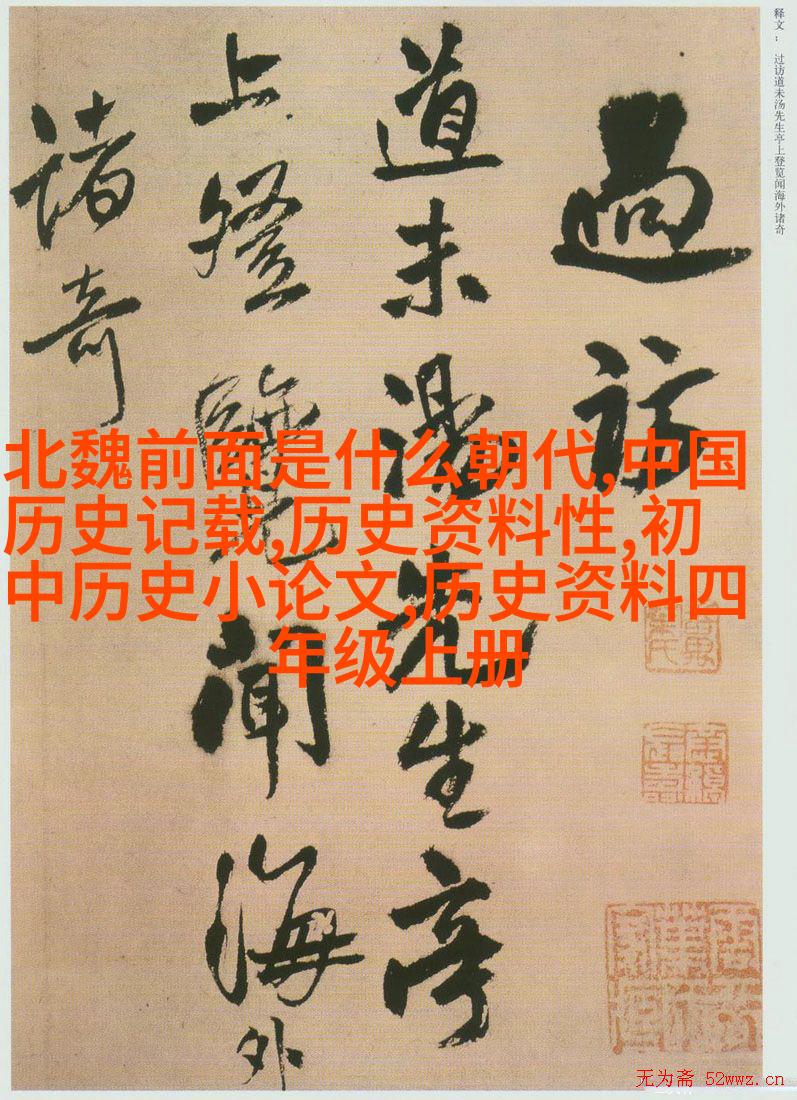 释文： 过访道未汤先生亭上登览闻海外诸奇
過訪
道未湯先生亭
上登覽聞海外
諸奇
北魏前面是什么朝代,中国
历史记载,历史资料性,初
中历史小论文,历史资料四
年级上册
无为斋 52wwz.cn